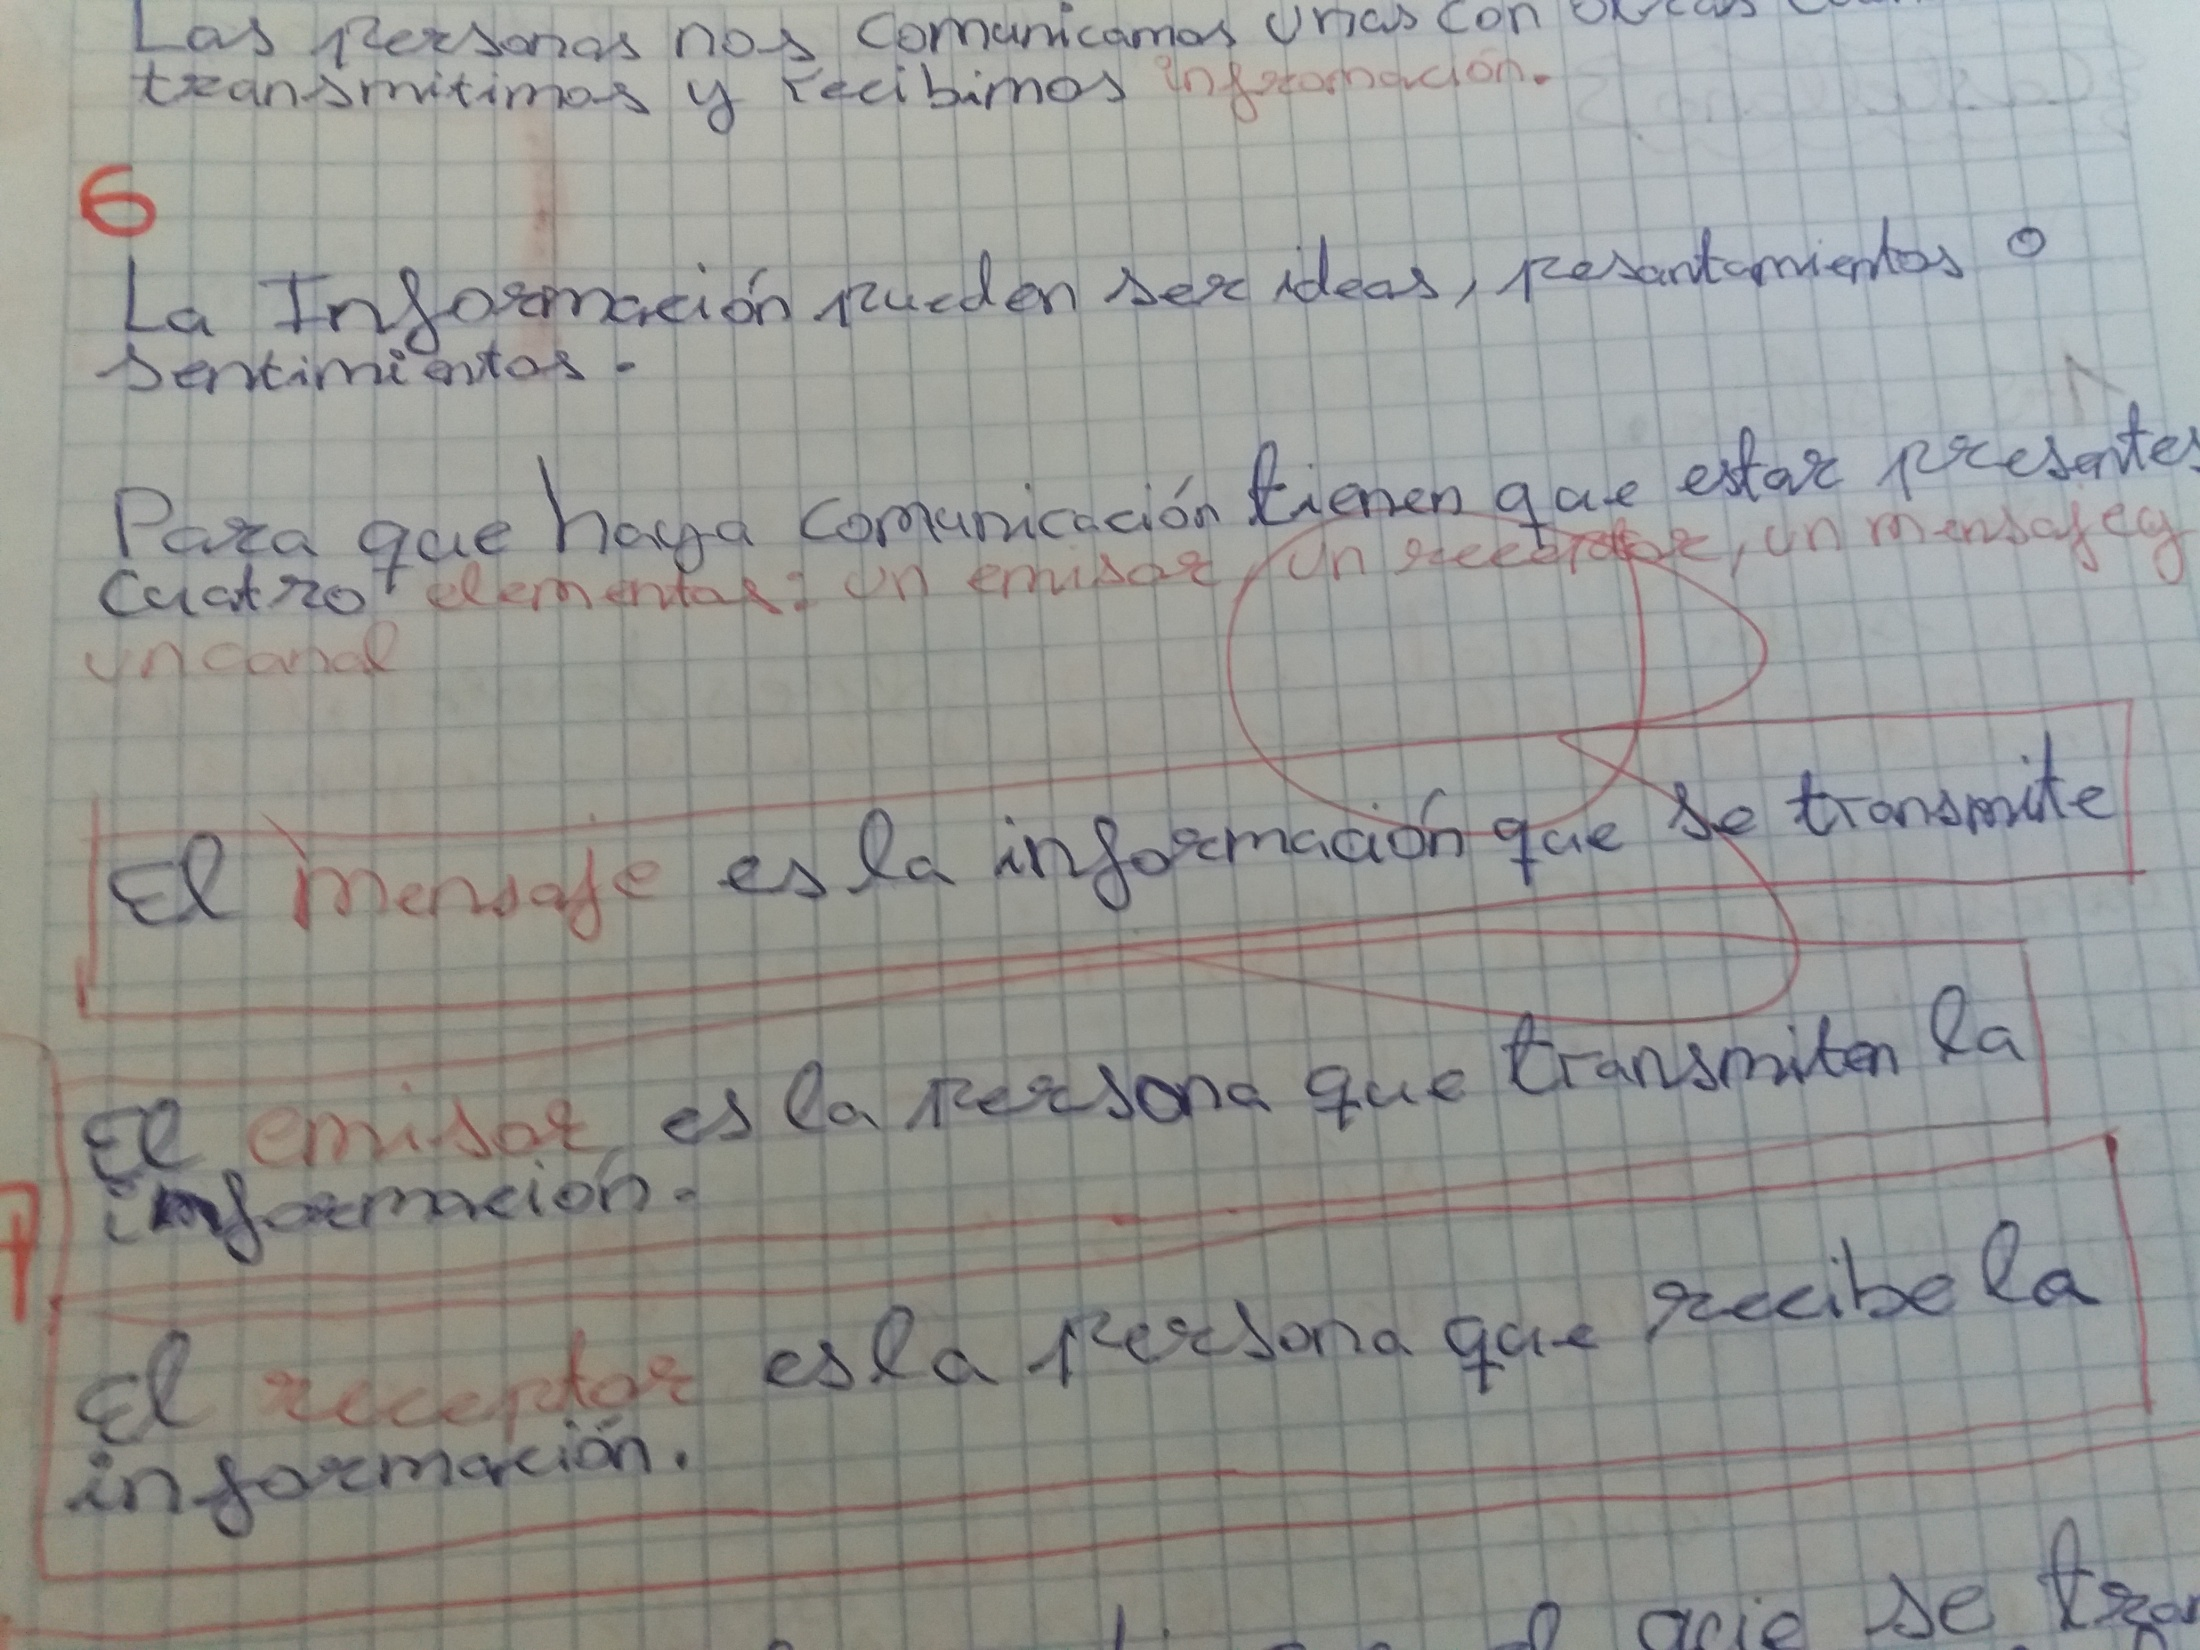 Las personas nos comunicamos unas con otras
transmitimos y recibimos información.
6
La Información pueden ser ideas, pesantamientos o
sentimientos.
Para que haya comunicación tienen que estar presentes
cuatro elementos: un emisor, un receptor, un mensaje y
un canal
El mensaje es la información que se transmite
El emisor es la persona que transmiten la
información.
El receptor es la persona que recibe la
información.
que se